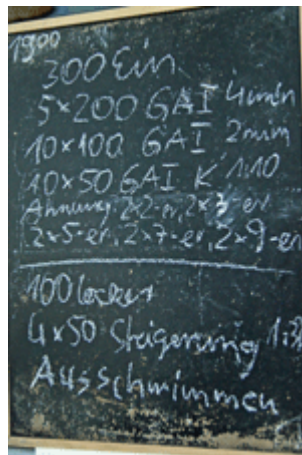 1900
300 Ein
5×200 GAI 4min
10×100 GAI 2min
10×50 GAI K 1:10
Ahnung: 2×2-er, 2×3-er
2×5-er, 2×7-er, 2×9-er
100 locker
4×50 Steigerung
Ausschwimmen